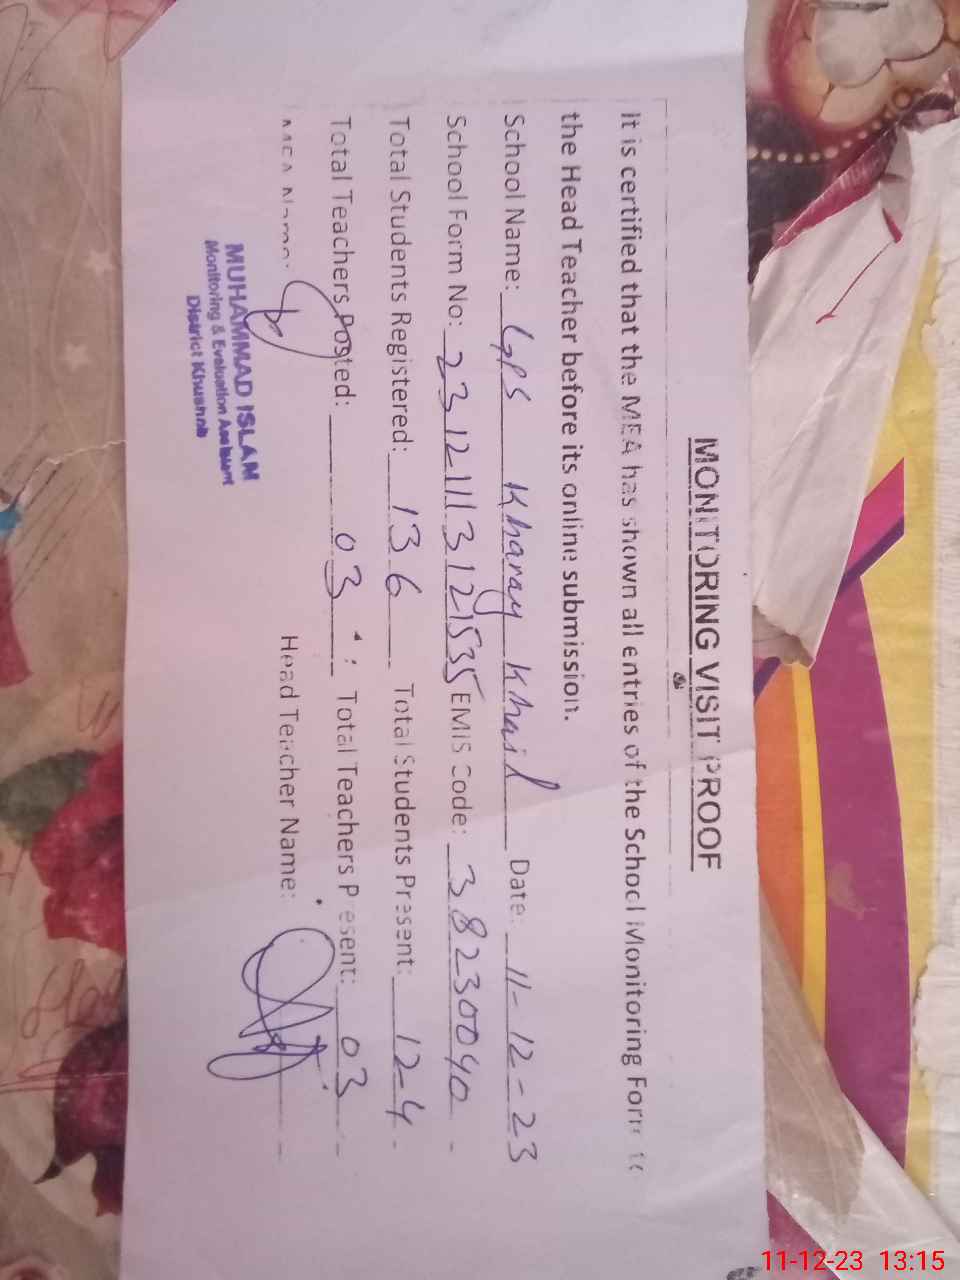 MONITORING VISIT PROOF
It is certified that the MEA has shown all entries of the School Monitoring Form to
the Head Teacher before its online submission.
School Name: GPS Kharay Khail Date: 11-12-23
School Form No: 23121113121535 EMIS Code: 38230040
Total Students Registered: 136 Total Students Present: 124
Total Teachers Posted: 03 Total Teachers Present: 03
MEA Name: Head Teacher Name:
MUHAMMAD ISLAM
Monitoring & Evaluation Assistant
District Khushab
11-12-23 13:15